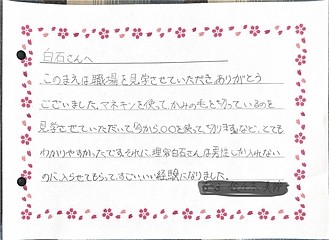 白石さんへ
このまえは職場を見学させていただきありがとう
ございました。マネキンを使ってかみの毛を切っているのを
見学させていただいて今から〇〇を使って切りますなど、とても
わかりやすかったです。それに、理容白石さんは男性しか入れない
のに、入らせてもらって、すごくいい経験になりました。